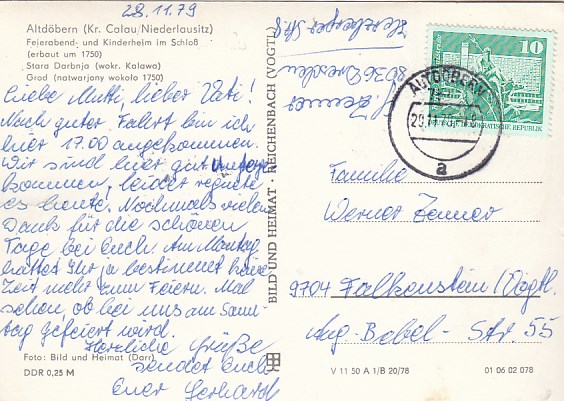 28.11.79
Altdöbern (Kr. Calau/Niederlausitz)
Feierabend- und Kinderheim im Schloß
(erbaut um 1750)
Stara Darbnja (wokr. Kalawa)
Grod (natwarjony wokoło 1750)
Liebe Mutti, lieber Vati!
Nach guter Fahrt bin ich
hier 17.00 angekommen.
Wir sind hier gut unterge-
kommen, leider regnete
es heute. Nochmals vielen
Dank für die schönen
Tage bei Euch. Am Montag
hattet Ihr ja bestimmt keine
Zeit mehr zum Feiern. Mal
sehen, ob bei uns am Sams-
tag gefeiert wird.
Herzliche Grüße
sendet Euch
Euer Gerhard
Foto: Bild und Heimat (Darr)
DDR 0,25 M
BILD UND HEIMAT · REICHENBACH (VOGTL)
G. Zenner
8036 Dresden
Herzberger Str. 8
10
DEUTSCHE DEMOKRATISCHE REPUBLIK
ALTDÖBERN
29.11.79
a
Familie
Werner Zenner
9704 Falkenstein/Vogtl.
Aug.-Bebel-Str. 55
V 11 50 A 1/B 20/78
01 06 02 078